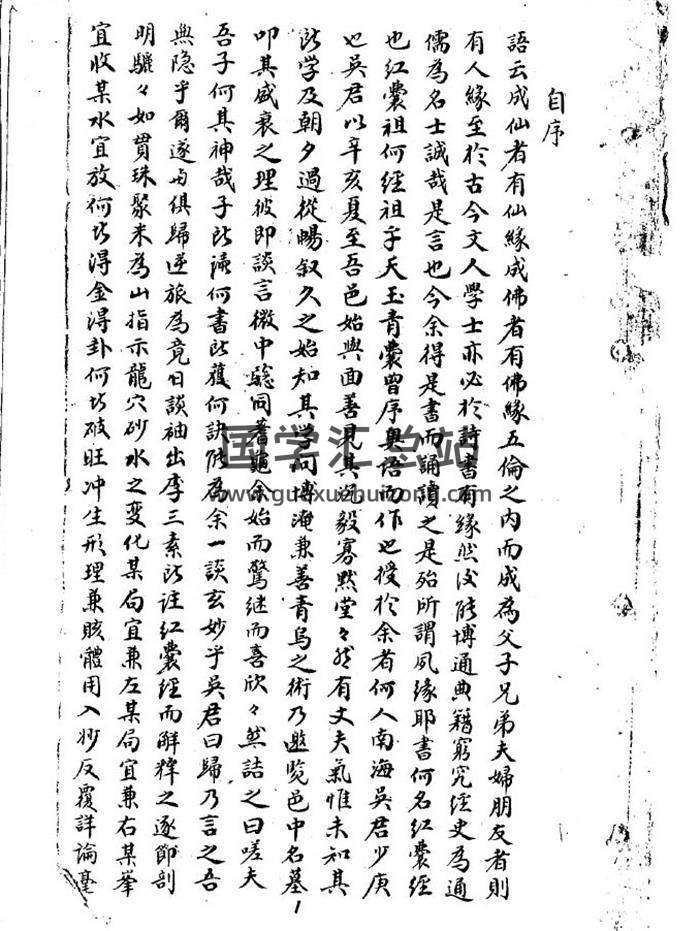 自序
語云成仙者有仙緣成佛者有佛緣五倫之内而成為父子兄弟夫婦朋友者則
有人緣至於古今文人學士亦必於詩書有緣然後能博通典籍窮究經史為通
儒為名士誠哉是言也今余得是書而誦讀之是殆所謂夙緣耶書何名紅囊經
也紅囊祖何經祖乎天玉青囊曾序奥语而作也授於余者何人南海吳君少庚
也吳君以辛亥夏至吾邑始與面善見其沉毅寡默堂々然有丈夫氣惟未知其
所学及朝夕過從暢叙久之始知其学问博淹兼善青烏之術乃邀览邑中名墓
叩其盛衰之理彼即談言微中驗同蓍龜余始而驚继而喜欣々然詰之曰嗟夫
吾子何其神哉子所讀何書所獲何訣能為余一談玄妙乎吳君曰歸乃言之吾
無隐乎爾遂与俱歸逆旅為竟日談袖出李三素所註紅囊經而解釋之逐節剖
明驪々如貫珠聚米為山指示龍穴砂水之变化某局宜兼左某局宜兼右某峯
宜收某水宜放何以得金得卦何以破旺冲生形理兼賅體用入妙反覆詳論毫
1
国学汇总站
www.guoxuehuizong.com